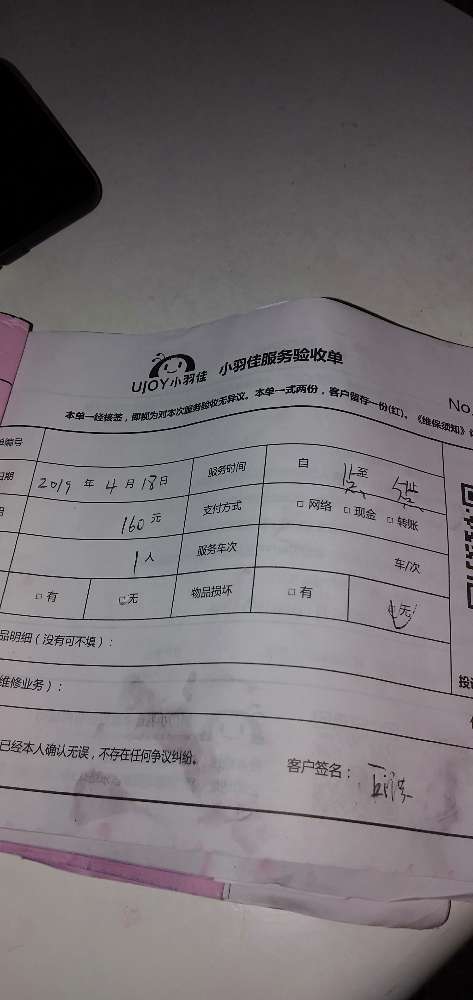 UJOY小羽佳 小羽佳服务验收单
No.
本单一经核签，即视为对本次服务验收无异议。本单一式两份，客户留存一份(红)。《维保须知》
单编号
日期 2019 年 4 月 18 日 服务时间 自 至
160 元 支付方式 □ 网络 □ 现金 □ 转账
1 人 服务车次 车/次
□ 有 □ 无 物品损坏 □ 有 □ 无
品明细（没有可不填）：
维修业务）：
已经本人确认无误，不存在任何争议纠纷。
客户签名：